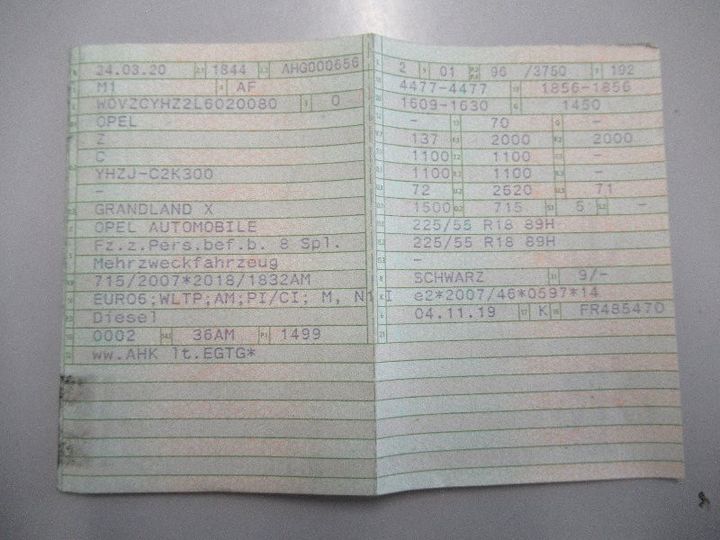 24.03.20 1844 AHG000656
M1 AF
W0VZCYHZ2L6020080 0
OPEL
Z
C
YHZJ-C2K300
–
GRANDLAND X
OPEL AUTOMOBILE
Fz.z.Pers.bef.b. 8 Spl.
Mehrzweckfahrzeug
715/2007*2018/1832AM
EURO6;WLTP;AM;PI/CI; M, N1 I
Diesel
0002 36AM 1499
ww.AHK lt.EGTG*
2 01 96 /3750 192
4477-4477 1856-1856
1609-1630 1450
– 70 –
137 2000 2000
1100 1100 –
1100 1100 –
72 2520 71
1500 715 5 –
225/55 R18 89H
225/55 R18 89H
–
SCHWARZ 9/–
e2*2007/46*0597*14
04.11.19 K FR485470